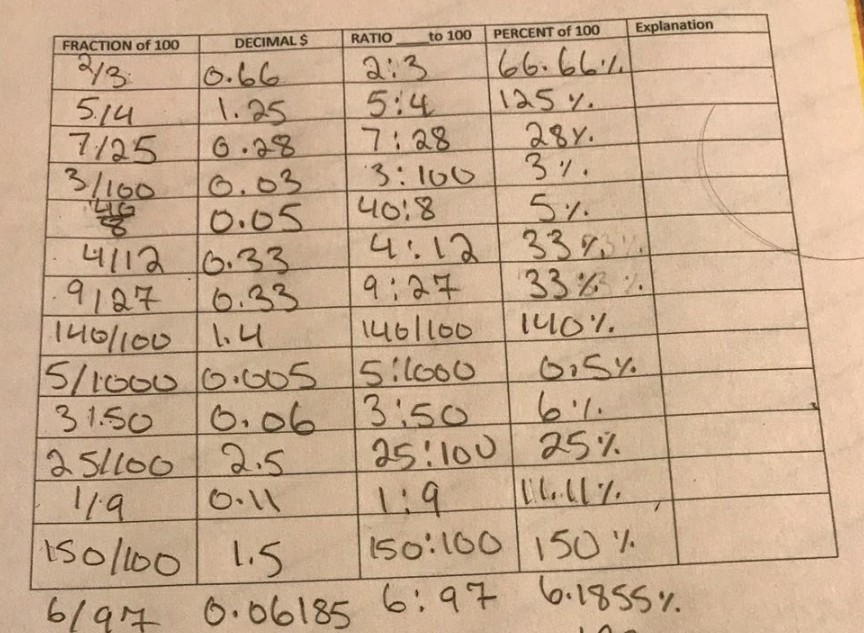 FRACTION of 100 DECIMAL $ RATIO ____to 100 PERCENT of 100 Explanation
2/3 0.66 2:3 66.66%
5/4 1.25 5:4 125%
7/25 0.28 7:28 28%
3/100 0.03 3:100 3%
40/8 0.05 40:8 5%
4/12 0.33 4:12 33%
9/27 0.33 9:27 33%
140/100 1.4 140/100 140%
5/1000 0.005 5:1000 0.5%
3/50 0.06 3:50 6%
25/100 2.5 25:100 25%
1/9 0.11 1:9 11.11%
150/100 1.5 150:100 150%
6/97 0.06185 6:97 6.1855%